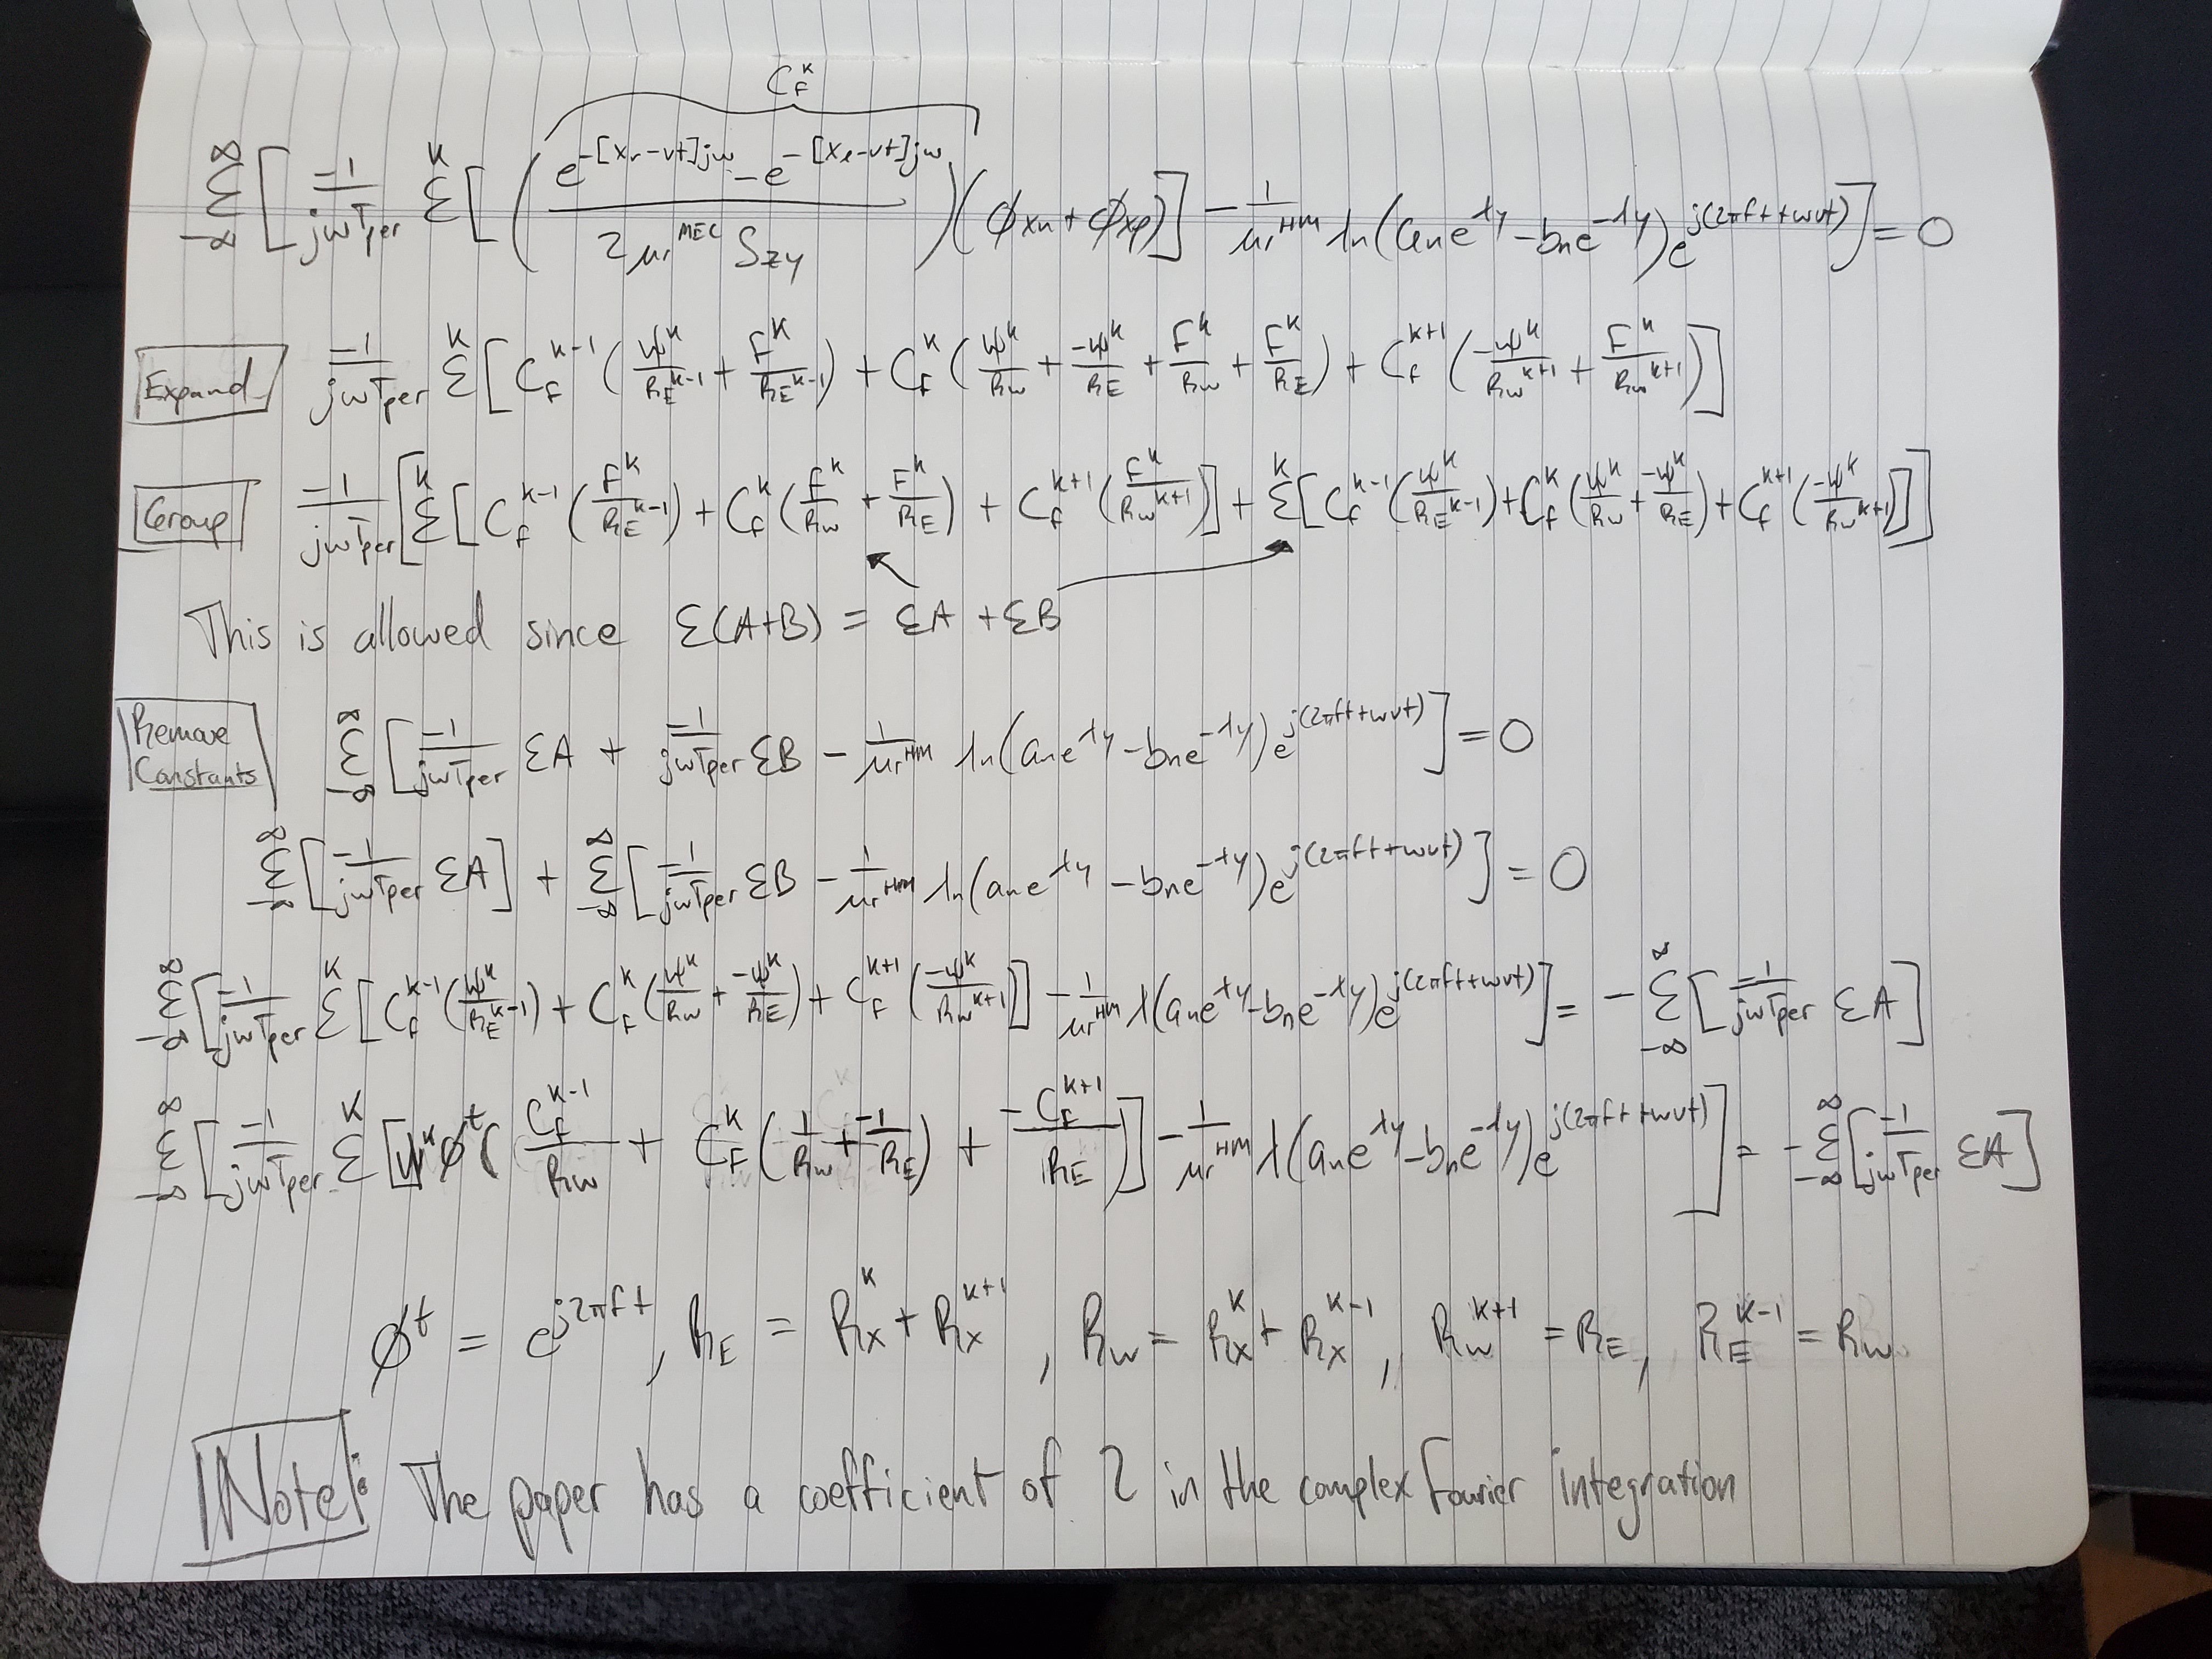 C_F^k
∞Σ-∞ [ -1/(jwTper) Σ^k [ ( (e^{-[xr-vt]jw} - e^{-[xl-vt]jw}) / (2μr^{MEC} Szy) ) (ϕxn + ϕxp) ] - 1/μr^{HM} λn(an e^{λy} - bn e^{-λy}) e^{j(2πft+wvt)} ] = 0
Expand -1/(jwTper) Σ^k [ C_F^{k-1} ( ψ^k/R_E^{k-1} + F^k/R_E^{k-1} ) + C_F^k ( ψ^k/R_W + -ψ^k/R_E + F^k/R_W + F^k/R_E ) + C_F^{k+1} ( -ψ^k/R_W^{k+1} + F^k/R_W^{k+1} ) ]
Group -1/(jwTper) [ Σ^k [ C_F^{k-1} ( F^k/R_E^{k-1} ) + C_F^k ( F^k/R_W + F^k/R_E ) + C_F^{k+1} ( F^k/R_W^{k+1} ) ] + Σ^k [ C_F^{k-1} ( ψ^k/R_E^{k-1} ) + C_F^k ( ψ^k/R_W + -ψ^k/R_E ) + C_F^{k+1} ( -ψ^k/R_W^{k+1} ) ] ]
This is allowed since Σ(A+B) = ΣA + ΣB
Remove Constants ∞Σ-∞ [ -1/(jwTper) ΣA + -1/(jwTper) ΣB - 1/μr^{HM} λn(an e^{λy} - bn e^{-λy}) e^{j(2πft+wvt)} ] = 0
∞Σ-∞ [ -1/(jwTper) ΣA ] + ∞Σ-∞ [ -1/(jwTper) ΣB - 1/μr^{HM} λn(an e^{λy} - bn e^{-λy}) e^{j(2πft+wvt)} ] = 0
∞Σ-∞ [ -1/(jwTper) Σ^k [ C_F^{k-1} ( ψ^k/R_E^{k-1} ) + C_F^k ( ψ^k/R_W + -ψ^k/R_E ) + C_F^{k+1} ( -ψ^k/R_W^{k+1} ) ] - 1/μr^{HM} λ(an e^{λy} - bn e^{-λy}) e^{j(2πft+wvt)} ] = - ∞Σ-∞ [ -1/(jwTper) ΣA ]
∞Σ-∞ [ -1/(jwTper) Σ^k [ ψ^k ϕ^t ( C_F^{k-1}/R_W + C_F^k ( 1/R_W + -1/R_E ) + -C_F^{k+1}/R_E ] - 1/μr^{HM} λ(an e^{λy} - bn e^{-λy}) e^{j(2πft+wvt)} ] = - ∞Σ-∞ [ -1/(jwTper) ΣA ]
ϕ^t = e^{j2πft}, R_E = R_x^k + R_x^{k+1}, R_W = R_x^k + R_x^{k-1}, R_W^{k+1} = R_E, R_E^{k-1} = R_W
Note: The paper has a coefficient of 2 in the complex fourier integration